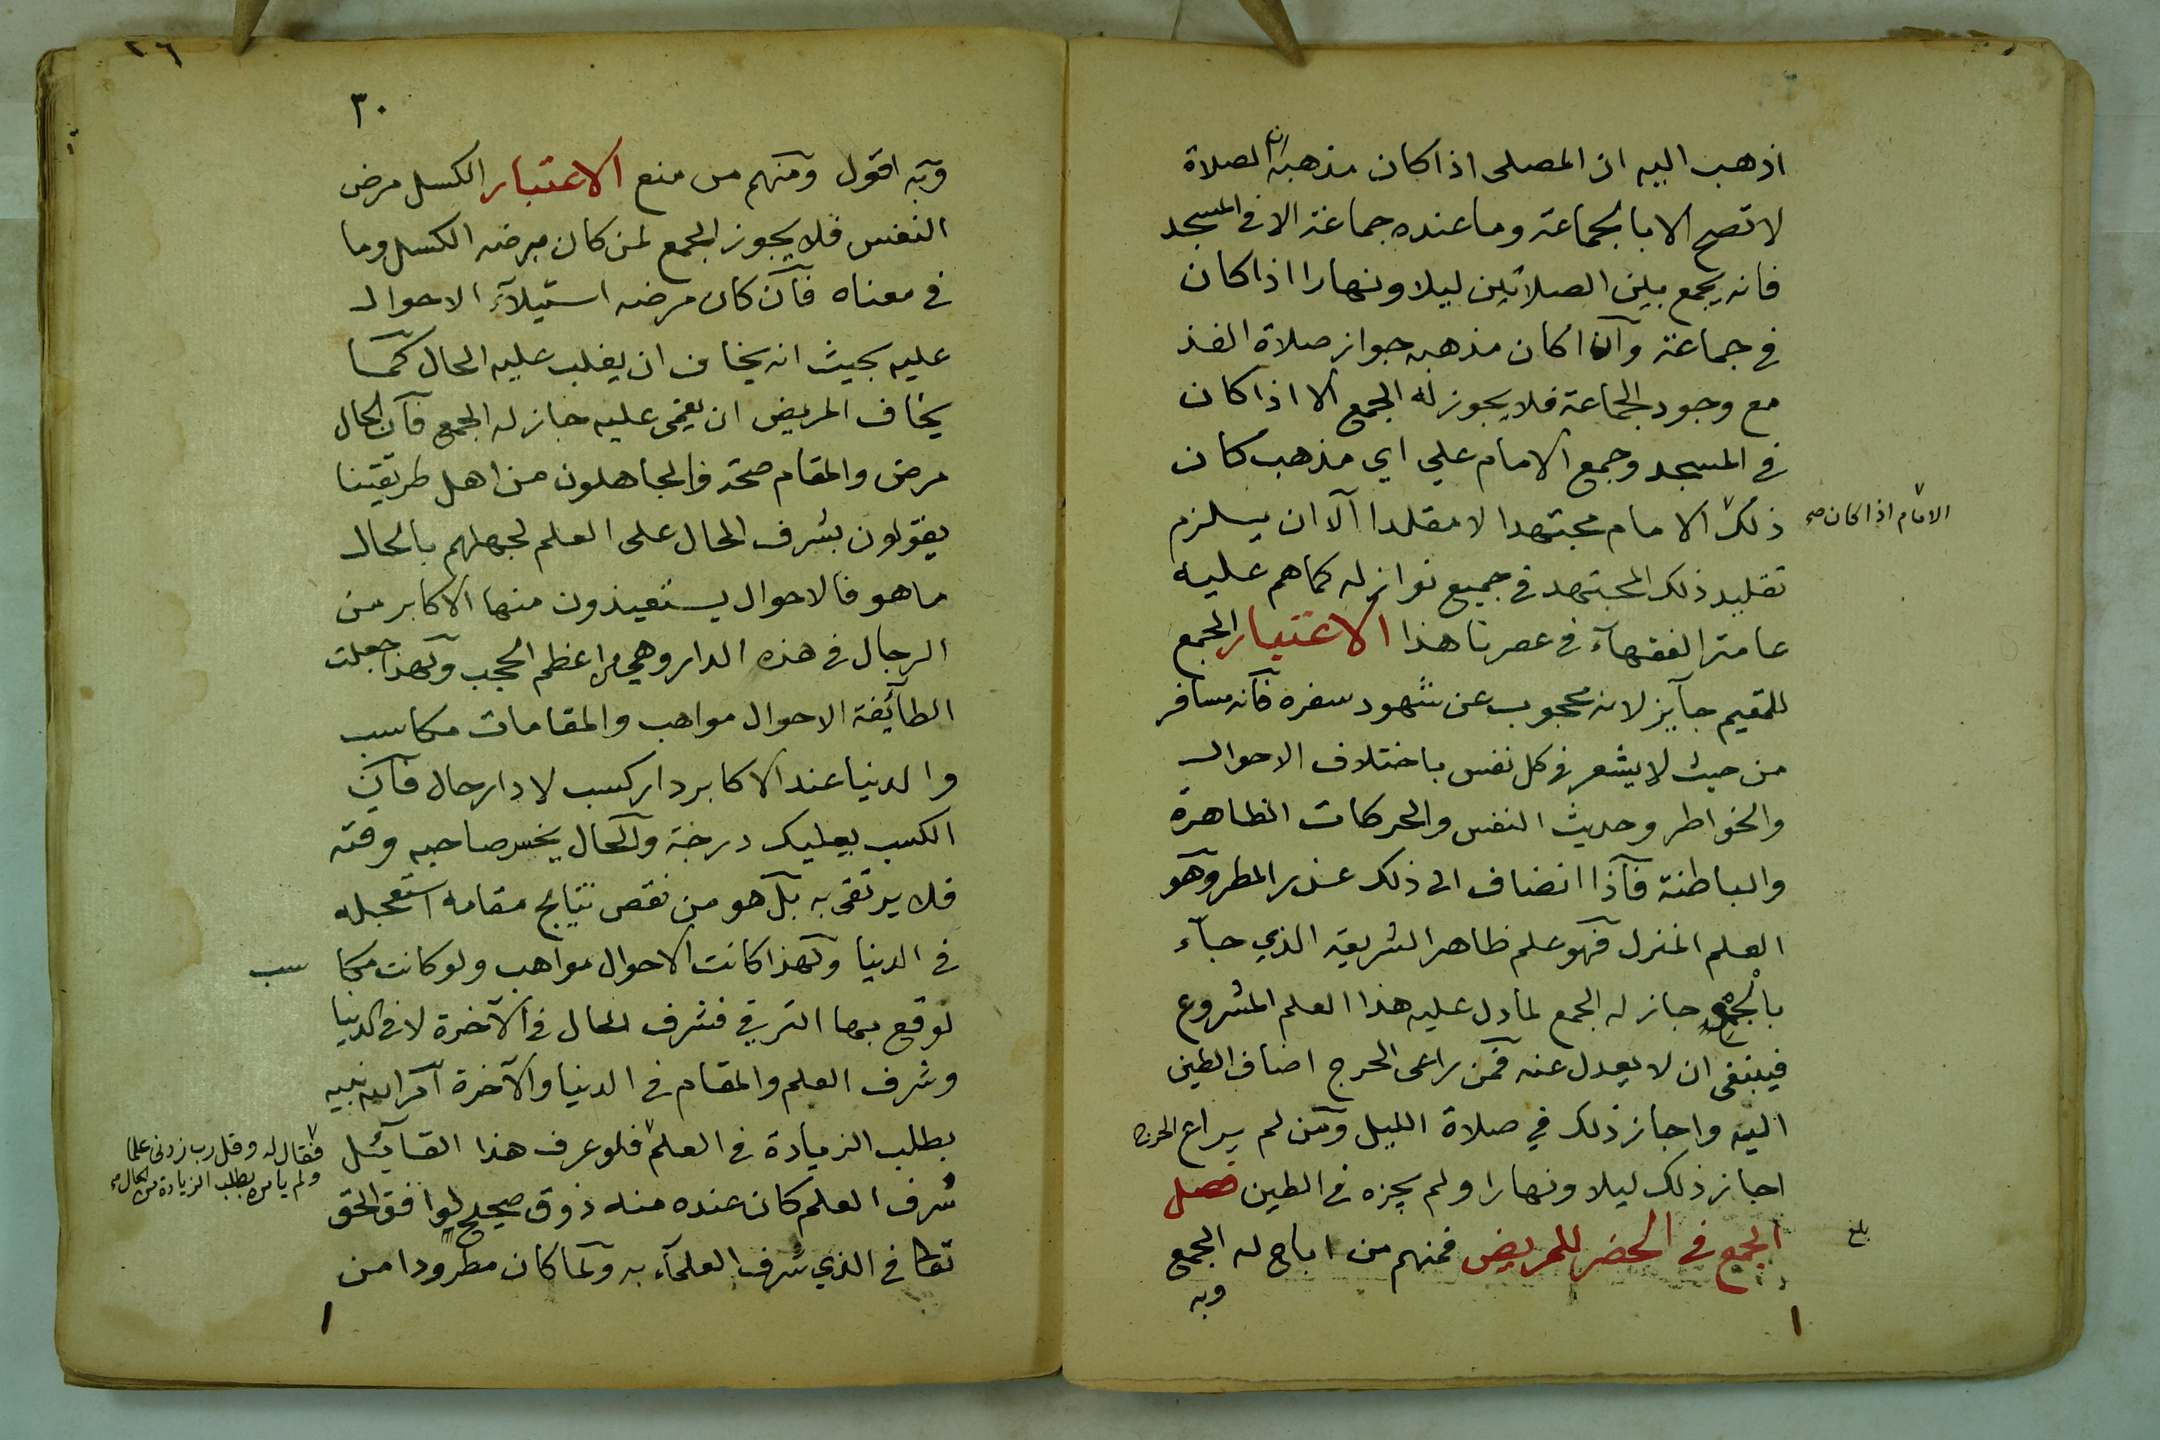 اذهب اليه ان المصلى اذا كان مذهبه ان الصلاة
لا تصح الا بالجماعة وما عنده جماعة الا فى المسجد
فانه يجمع بين الصلاتين ليلا ونهارا اذا كان
فى جماعة وان كان مذهبه جواز صلاة الفذ
مع وجود الجماعة فلا يجوز له الجمع الا اذا كان
فى المسجد وجمع الامام على اي مذهب كان
ذلك الامام مجتهدا لا مقلدا الا ان يلزم
الامام اذا كان صح
تقليد ذلك المجتهد فى جميع نوازله كما هم عليه
عامة الفقهآء فى عصرنا هذا الاعتبار الجمع
للمقيم جآيز لانه محجوب عن شهود سفره فانه مسافر
من حيث لا يشعر فى كل نفس باختلاف الاحوال
والخواطر وحديث النفس والحركات الظاهرة
والباطنة فاذا انضاف الى ذلك عذر المطر وهو
العلم المنزل فهو علم ظاهر الشريعة الذي جآء
بالجمع جاز له الجمع لما دل عليه هذا العلم المشروع
فينبغى ان لا يعدل عنه فمن راعى الحرج اضاف الطين
اليه واجاز ذلك في صلاة الليل ومن لم يراع الحرج
اجاز ذلك ليلا ونهارا ولم يجزه فى الطين فصل
الجمع فى الحضر للمريض فمنهم من اباح له الجمع
بلغ
وبه
٢٦
٣٠
وبه اقول ومنهم من منع الاعتبار الكسل مرض
النفس فلا يجوز الجمع لمن كان مرضه الكسل وما
فى معناه فان كان مرضه استيلآء الاحوال
عليه بحيث انه يخاف ان يغلب عليه الحال كما
يخاف المريض ان يغمى عليه جاز له الجمع فان الحال
مرض والمقام صحة والجاهلون من اهل طريقتنا
يقولون بشرف الحال على العلم لجهلهم بالحال
ما هو فالاحوال يستعيذون منها الاكابر من
الرجال فى هذه الدار وهي من اعظم الحجب ولهذا جعلت
الطآئفة الاحوال مواهب والمقامات مكاسب
والدنيا عند الاكابر دار كسب لا دار حال فان
الكسب يعليك درجة والحال يخسر صاحبه وقته
فلا يرتقى به بل هو من نقص نتايج مقامه استعجله
فى الدنيا ولهذا كانت الاحوال مواهب ولو كانت مكا سب
لوقع بها الترقي فشرف الحال فى الآخرة لا فى الدنيا
وشرف العلم والمقام فى الدنيا والآخرة امر الله نبيه
بطلب الزيادة فى العلم فلو عرف هذا القآئل
فقال له وقل رب زدنى علما
ولم يامره بطلب الزيادة من الحال صح
شرف العلم كان عنده منه ذوق صحيح لوافق الحق
تعالى فى الذي شرف العلمآء به ولما كان مطرودا من